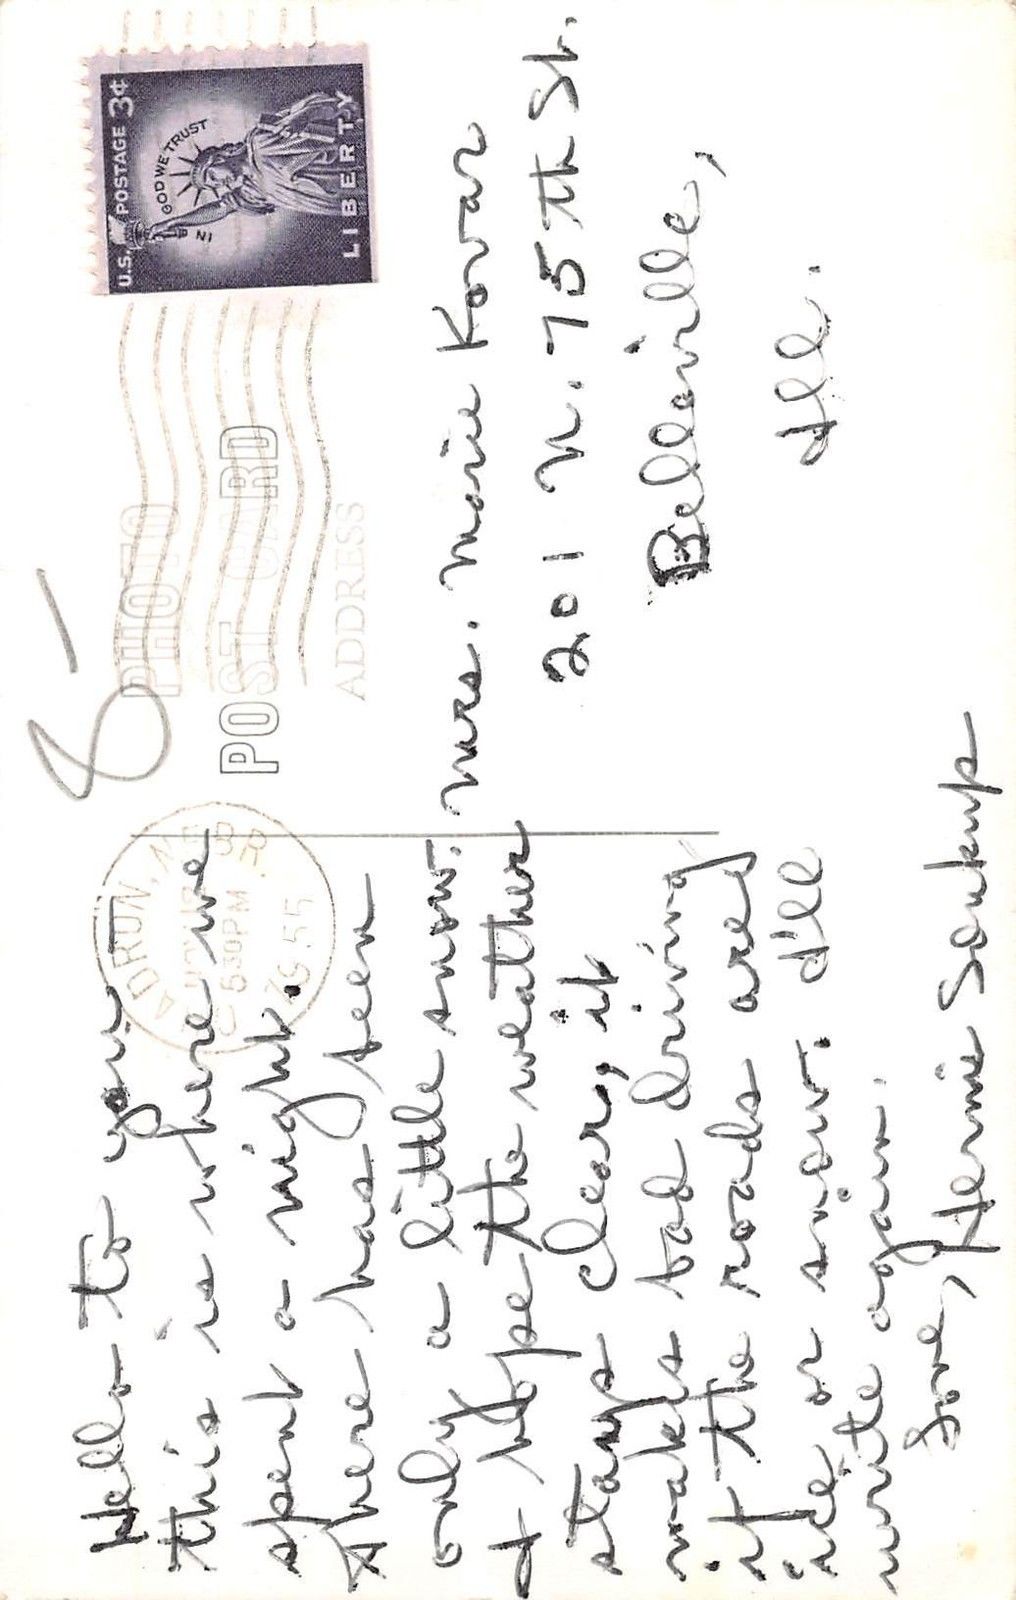 8-
U.S. POSTAGE 3¢
IN GOD WE TRUST
LIBERTY
PHOTO
POST CARD
ADDRESS
ADRON, NEBR
5:30 PM
1955
Hello to you:
this is where we
spent a night.
There has been
only a little snow.
I hope the weather
stays clear, it
makes bad driving
if the roads are
ice or snow. I'll
write again.
Love, Hermie Soukup
Mrs. Marie Kovar
201 N. 75th St.
Belleville,
Ill.